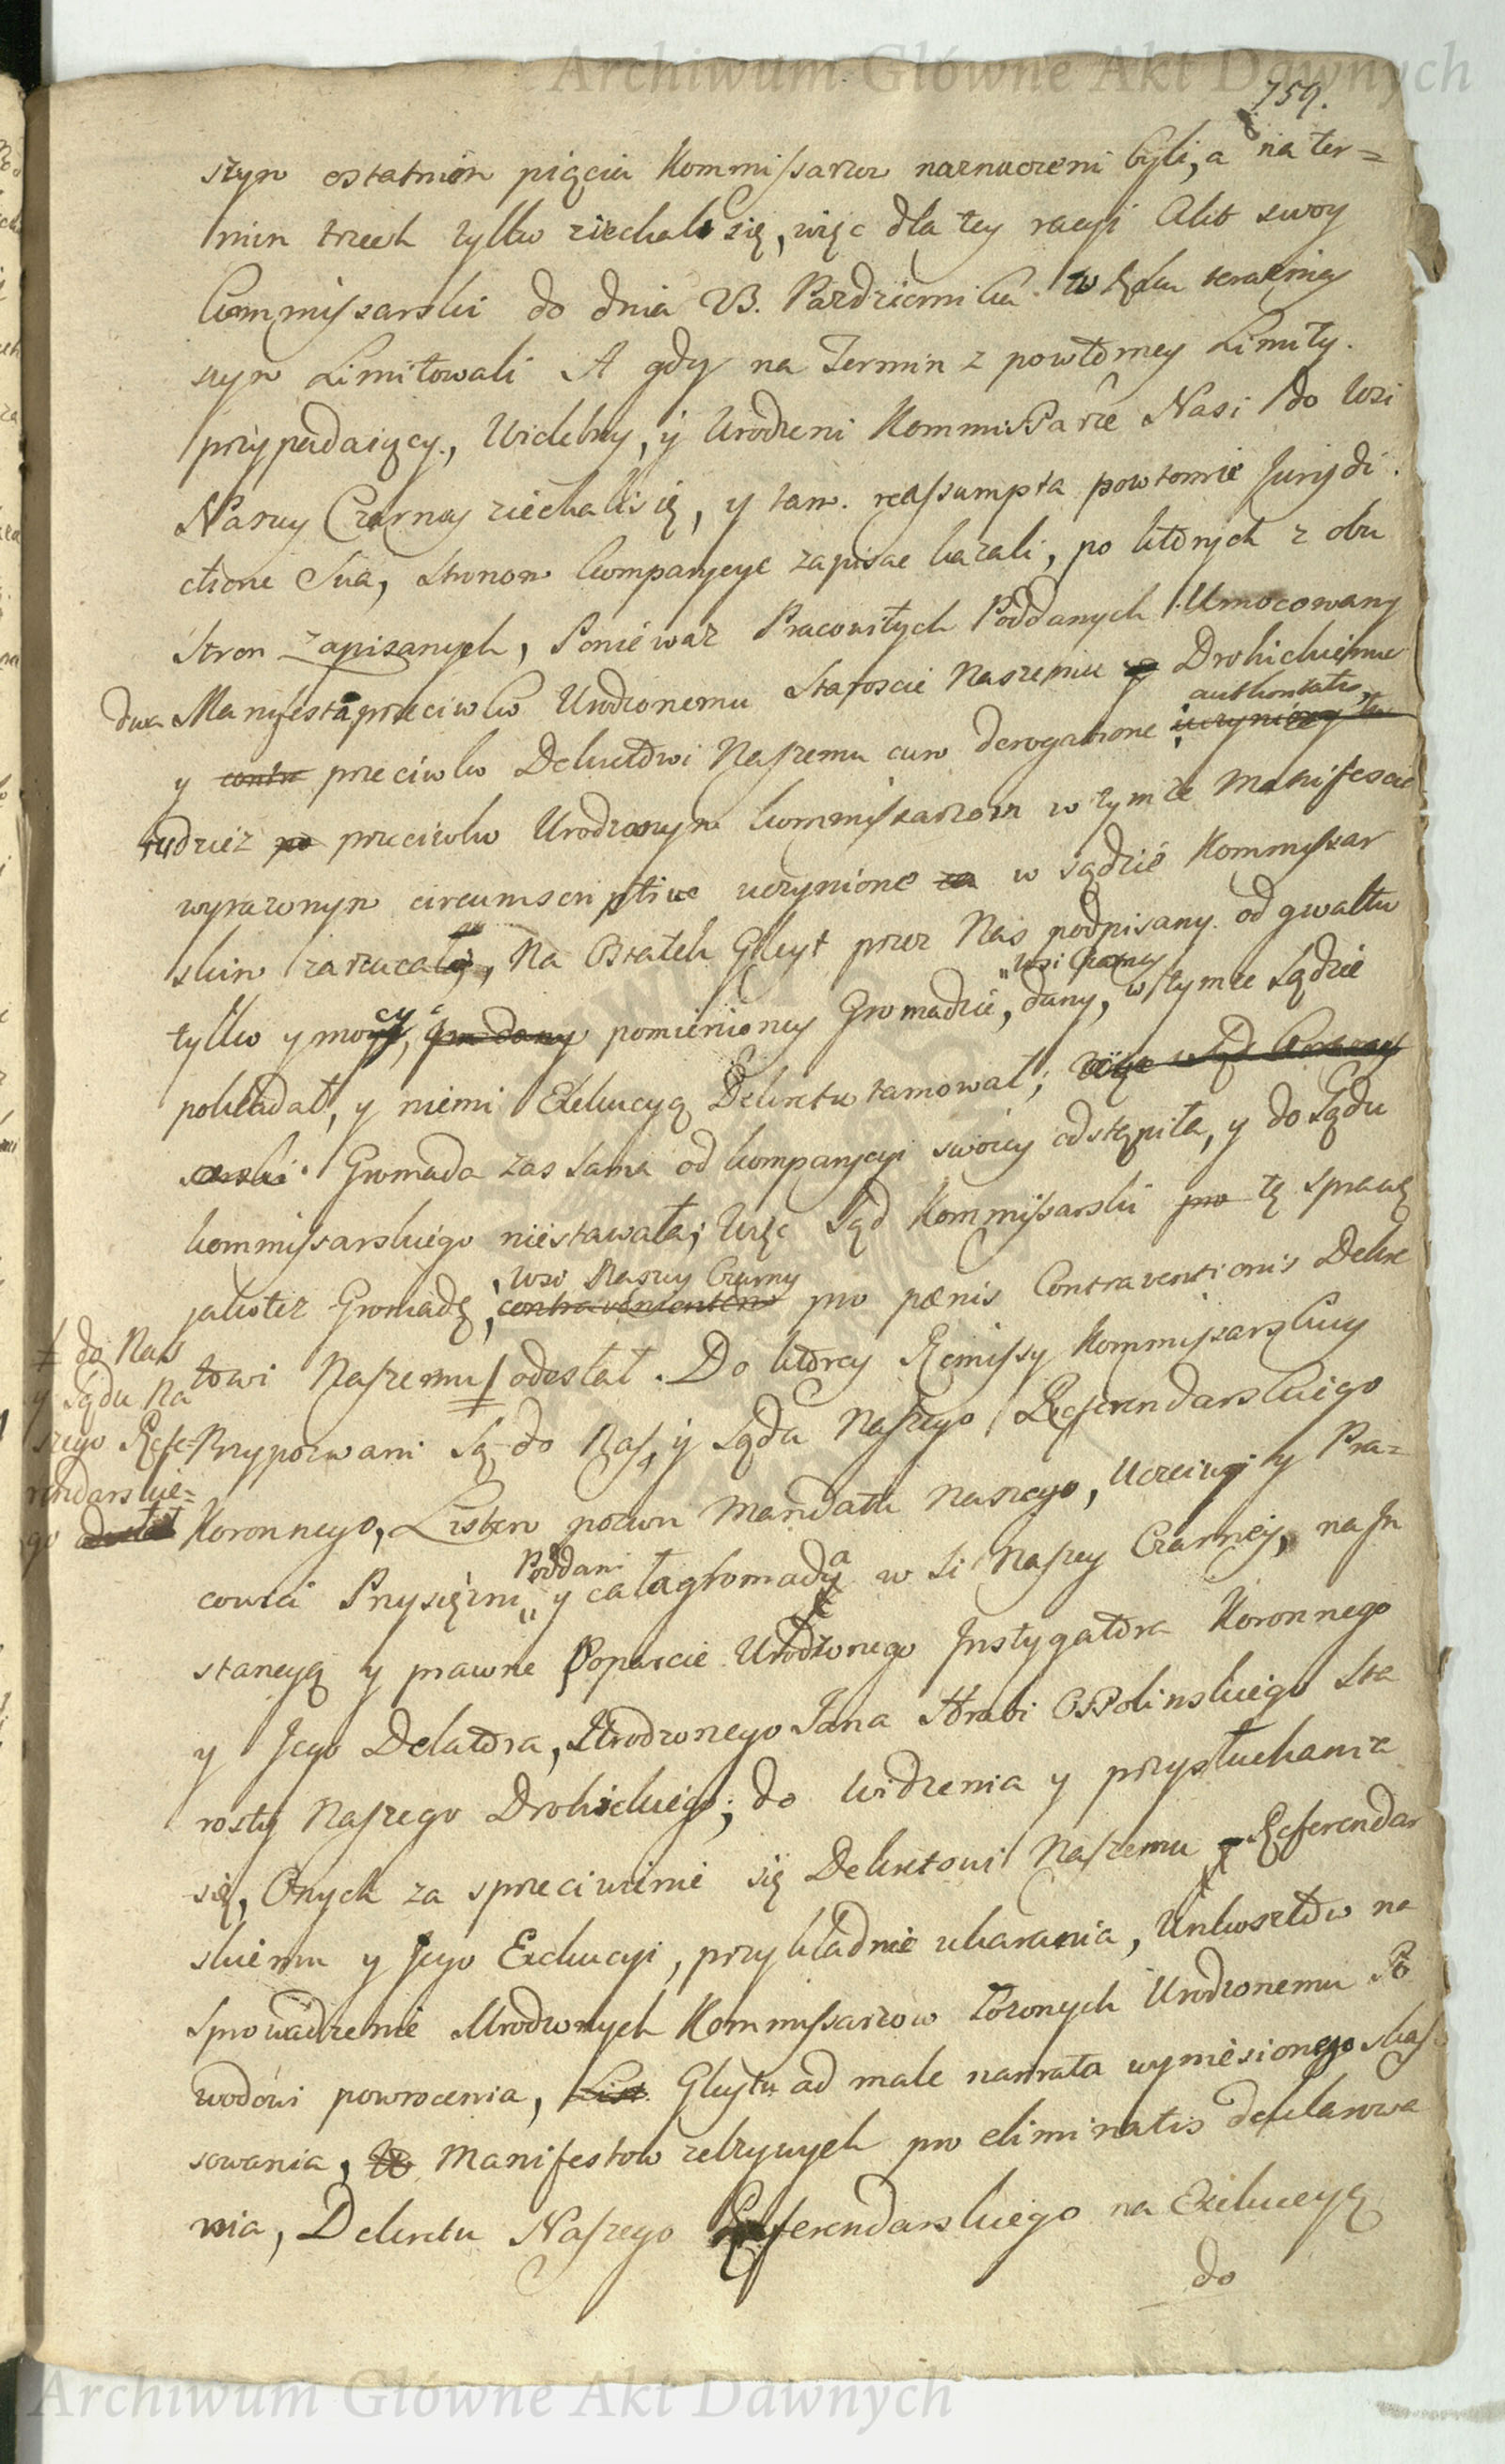 Archiwum Główne Akt Dawnych
759.
szym ostatnim pięciu Kommissarzow naznaczeni byli, a na ter=
min trzech tylko ziechali się, więc dla tey racyi Akt swoy
kommissarski do dnia 23. Pazdziernika w Roku terazniey
szym Limitowali A gdy na Termin z powtorney Limity.
przypadaiący, Wielebny, y Urodzeni Kommissarze Nasi do Wsi
Naszey Czarney ziechali się, y tam. reassumpta powtornie Jurisdi.
ctione sua, stronom komparycye zapisac kazali, po ktorych z obu
stron zapisanych, Poniewaz Pracowitych Poddanych Umocowany
dwa Manifesta przeciwko Urodzonemu Staroscie Naszemu Drohickiemu
authoritatis
y contra przeciwko Dekretowi Naszemu cum derogatione
tudziez przeciwko Urodzonym kommissarzom w tymze Manifescie
wyrazonym circumscriptive uczynione w sądzie Kommissar
skim zarzucał, Na Ostatek Gleyt przez Nas podpisany od gwałtu
Wsi Czarney
tylko y mocy, pomienioney Gromadzie, dany, w tymze Sądzie
pokładał, y niemi Exekucyą Dekretu tamował;
Gromada zas sama od komparycyi swoiey odstąpiła, y do Sądu
kommissarskiego niestawała; Więc Sąd Kommissarski tę sprawę
Wsi Naszey Czarney
jakotez Gromadę, contravenientem pro pænis Contraventionis Dekre
towi Naszemu odesłał. Do ktorey Remissy Kommissarskiey
≠ do Nas
y Sądu Na
szego Refe-
rendarskie=
go
Przypozwani są do Nas, y Sądu Naszego Referendarskiego
Koronnego, Listem pozwu Mandatu Naszego, Uczciwi y Pra=
Poddani
cowici Przysięzni y cała gromada wsi Naszey Czarney, na In
stancyą y prawne Poparcie Urodzonego Instygatora Koronnego
y Jego Delatora, Urodzonego Jana Hrabi Ossolinskiego Sta
rosty Naszego Drohickiego; do widzenia y przysłuchania
się, Onych za sprzeciwienie się Dekretowi Naszemu Referendar
skiemu y Jego Exekucyi, przykładnie ukarania, Unkosztow na
Sprowadzenie Urodzonych Kommissarzow łozonych Urodzonemu Po
wodowi powrocenia, Gleytu ad male narrata wyniesionego skas
sowania, Manifestow zelzywych pro eliminatis deklarowa
nia, Dekretu Naszego Referendarskiego na Exekucyą
do
Archiwum Główne Akt Dawnych